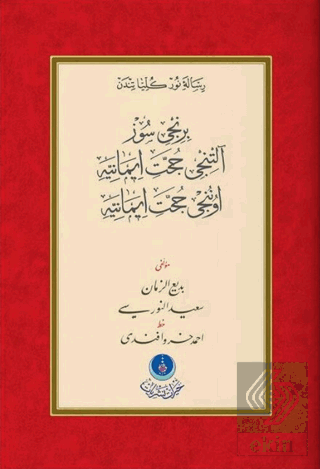 رسالۀ نور کلیاتندن
برنجی سوز
آلتنجی حجّت ایمانیّه
اوننجی حجّت ایمانیّه
مؤلفی
بدیع الزمان
سعید النورسی
خط
احمد خسرو افندی